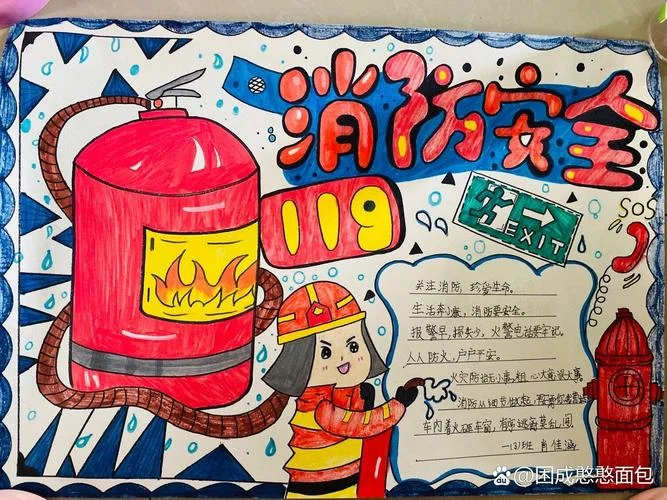 消防安全
119
EXIT
SOS
关注消防，珍爱生命。
生活奔小康，消防要安全。
报警早，损失少，火警电话要牢记。
人人防火，户户平安。
火灾防范无小事，粗心大意误大事。
消防从细节做起，
车内着火砸车窗，有序逃离莫乱闯
一(3)班 肖佳涵
@困成憨憨面包